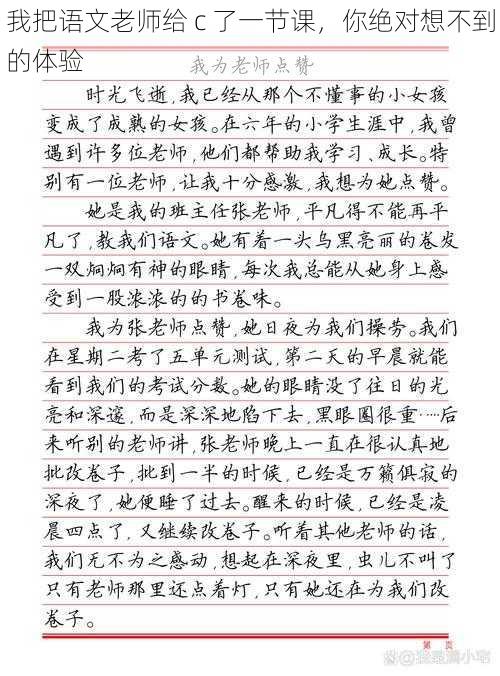 我把语文老师给 c 了一节课，你绝对想不到
的体验
我为老师点赞
时光飞逝,我已经从那个不懂事的小女孩
变成了成熟的女孩。在六年的小学生涯中,我曾
遇到许多位老师,他们都帮助我学习、成长。特
别有一位老师,让我十分感激,我想为她点赞。
她是我的班主任张老师,平凡得不能再平
凡了,教我们语文。她有着一头乌黑亮丽的卷发
一双炯炯有神的眼睛,每次我总能从她身上感
受到一股浓浓的的书卷味。
我为张老师点赞,她日夜为我们操劳。我们
在星期二考了五单元测试,第二天的早晨就能
看到我们的考试分数。她的眼睛没了往日的光
亮和深邃,而是深深地陷下去,黑眼圈很重……后
来听别的老师讲,张老师晚上一直在很认真地
批改卷子,批到一半的时候,已经是万籁俱寂的
深夜了,她便睡了过去。醒来的时候,已经是凌
晨四点了,又继续改卷子。听着其他老师的话,
我们无不为之感动,想起在深夜里,虫儿不叫了
只有老师那里还点着灯,只有她还在为我们改
卷子。
第 页